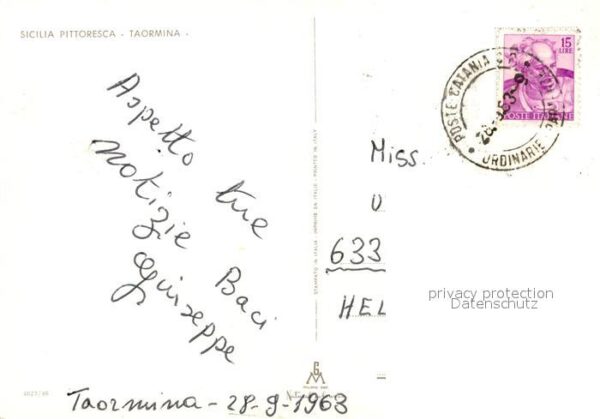 SICILIA PITTORESCA - TAORMINA -
Aspetto tue
notizie Baci
Giuseppe
Taormina - 28-9-1963
STAMPATO IN ITALIE - IMPRIMÉ EN ITALIE - PRINTED IN ITALY
15
LIRE
POSTE ITALIANE
POSTE CATANIA
ORDINARIE
Miss.
U
633
HEL
privacy protection
Datenschutz